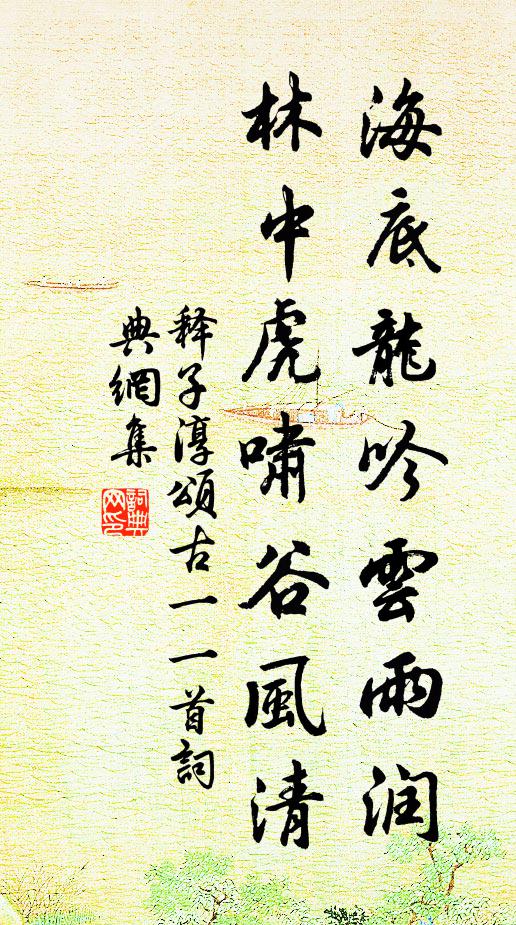 海底龍吟雲雨润
林中虎嘯谷風清
释子淳頌古一一首詞
典網集
詞典网印